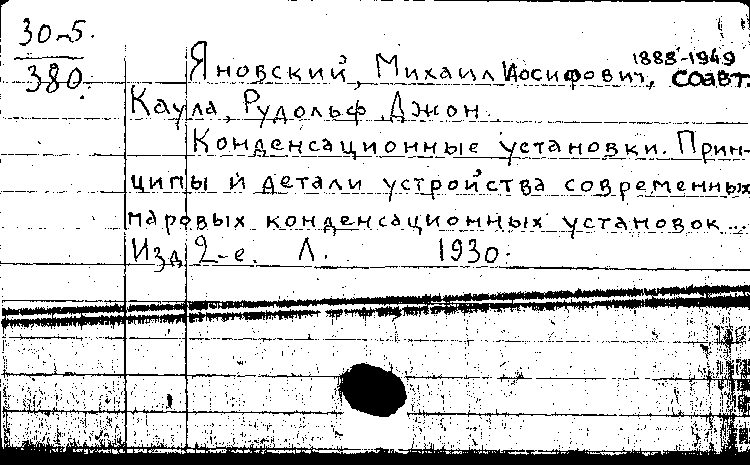 30-5.
380.
1888-1949
Яновский, Михаил Иосифович, соавт.
Каула, Рудольф Джон.
Конденсационные установки. Прин-
ципы и детали устройства современных
паровых конденсационных установок...
Изд 2-е. Л. 1930.